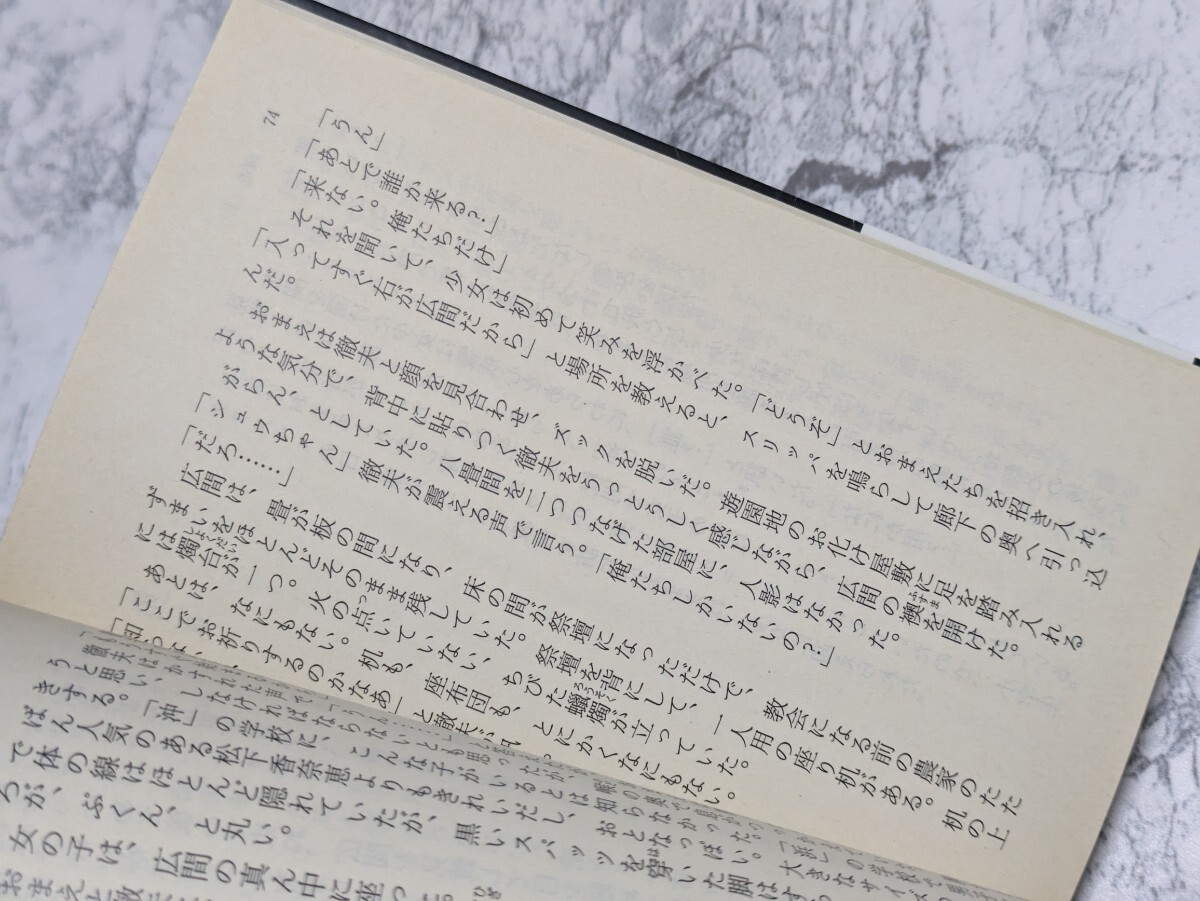 「うん」
「あとで誰か来る?」
「来ない。俺たちだけ」
それを聞いて、少女は初めて笑みを浮かべた。「どうぞ」とおまえたちを招き入れ、
「入ってすぐ右が広間だから」と場所を教えると、スリッパを鳴らして廊下の奥へ引っ込
んだ。
おまえは徹夫と顔を見合わせ、ズックを脱いだ。遊園地のお化け屋敷に足を踏み入れる
ような気分で、背中に貼りつく徹夫をうっとうしく感じながら、広間の襖を開けた。
がらん、としていた。八畳間を二つつなげた部屋に、人影はなかった。
「シュウちゃん」徹夫が震える声で言う。「俺たちしかいないの?」
「だろ……」
広間は、畳が板の間になり、床の間が祭壇になっただけで、教会になる前の農家のたた
ずまいをほとんどそのまま残していた。祭壇を背にして、一人用の座り机がある。机の上
には燭台が一つ。火の点いていない、ちびた蠟燭が立っていた。
あとは、なにもない。机も、座布団も、とにかくなにもない。
「ここでお祈りするのかなあ」と徹夫が
74
徹夫はかすれた声で
うと思い、しなければならないとも思ったが、喉の奥が
きする。「沖」の学校に、こんな子がいるとは知らなかった。「浜」の学校で
ばん人気のある松下香奈恵よりもきれいだし、おとなっぽい。大きなサイズの
で体の線はほとんど隠れていたが、黒いスパッツを穿いた脚は
ろが、ぷくん、と丸い。
女の子は、広間の真ん中に座っ
おまえと徹